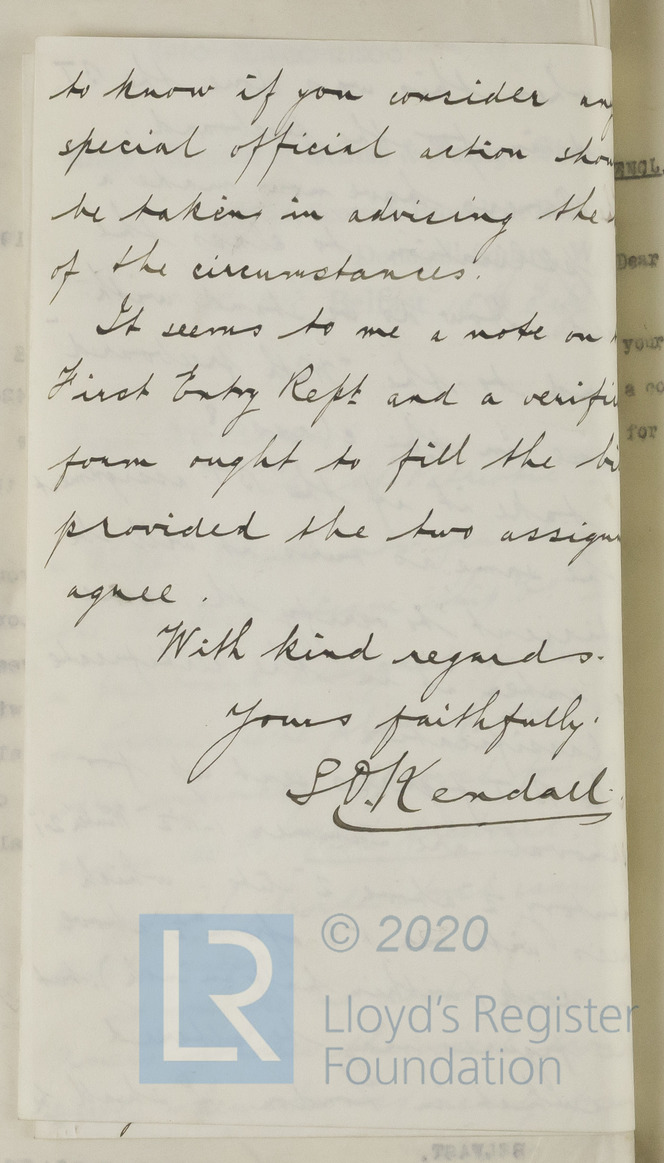 to know if you consider any
special official action shou
be taken in advising the
of the circumstances.
It seems to me a note on
First Entry Rept and a verifi
form ought to fill the bi
provided the two assignm
agree.
With kind regards.
Yours faithfully.
S.O. Kendall.
ENGL.
Dear
your
a co
for
LR
© 2020
Lloyd's Register
Foundation
BELFAST.